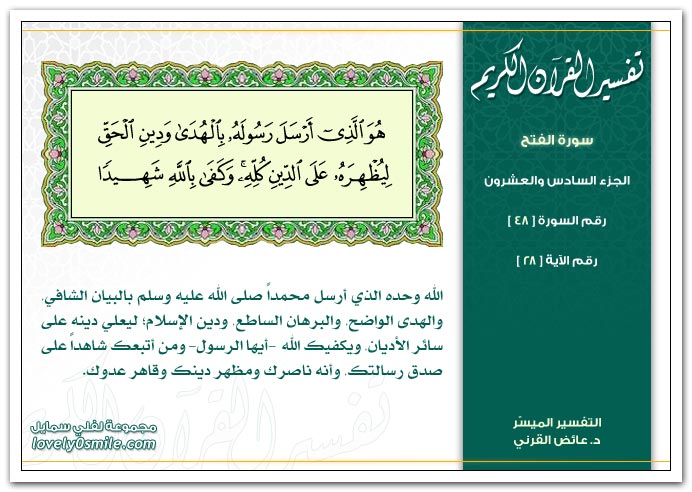 تفسير القرآن الكريم
سورة الفتح
الجزء السادس والعشرون
رقم السورة [ ٤٨ ]
رقم الآية [ ٢٨ ]
هُوَ ٱلَّذِىٓ أَرْسَلَ رَسُولَهُۥ بِٱلْهُدَىٰ وَدِينِ ٱلْحَقِّ
لِيُظْهِرَهُۥ عَلَى ٱلدِّينِ كُلِّهِۦ ۚ وَكَفَىٰ بِٱللَّهِ شَهِيدًا
الله وحده الذي أرسل محمداً صلى الله عليه وسلم بالبيان الشافي،
والهدى الواضح، والبرهان الساطع، ودين الإسلام؛ ليعلي دينه على
سائر الأديان، ويكفيك الله -أيها الرسول- ومن أتبعك شاهداً على
صدق رسالتك، وأنه ناصرك ومظهر دينك وقاهر عدوك.
التفسير الميسّر
د. عائض القرني
مجموعة لفلي سمايل
lovely0smile.com
تفسير القرآن الكريم